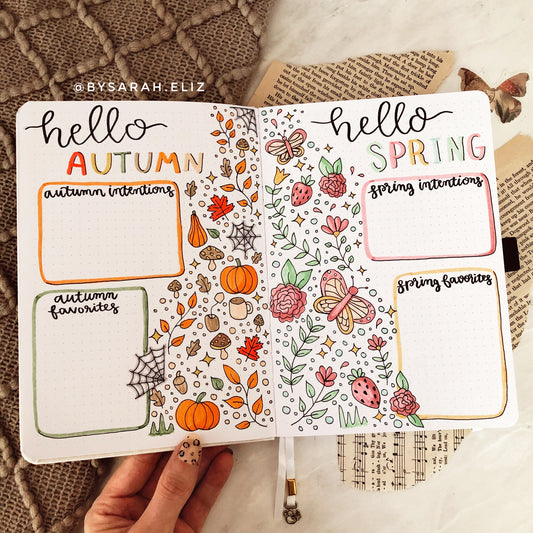 @BYSARAH.ELIZ
hello
AUTUMN
autumn intentions
autumn
favorites
hello
SPRING
spring intentions
spring favorites